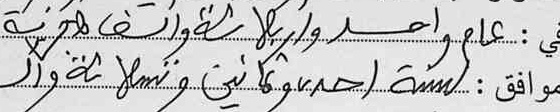 في : عام واحد وأربعمائة وألف هجرية
موافق : لسنة احدى وثمانين وتسعمائة وألف